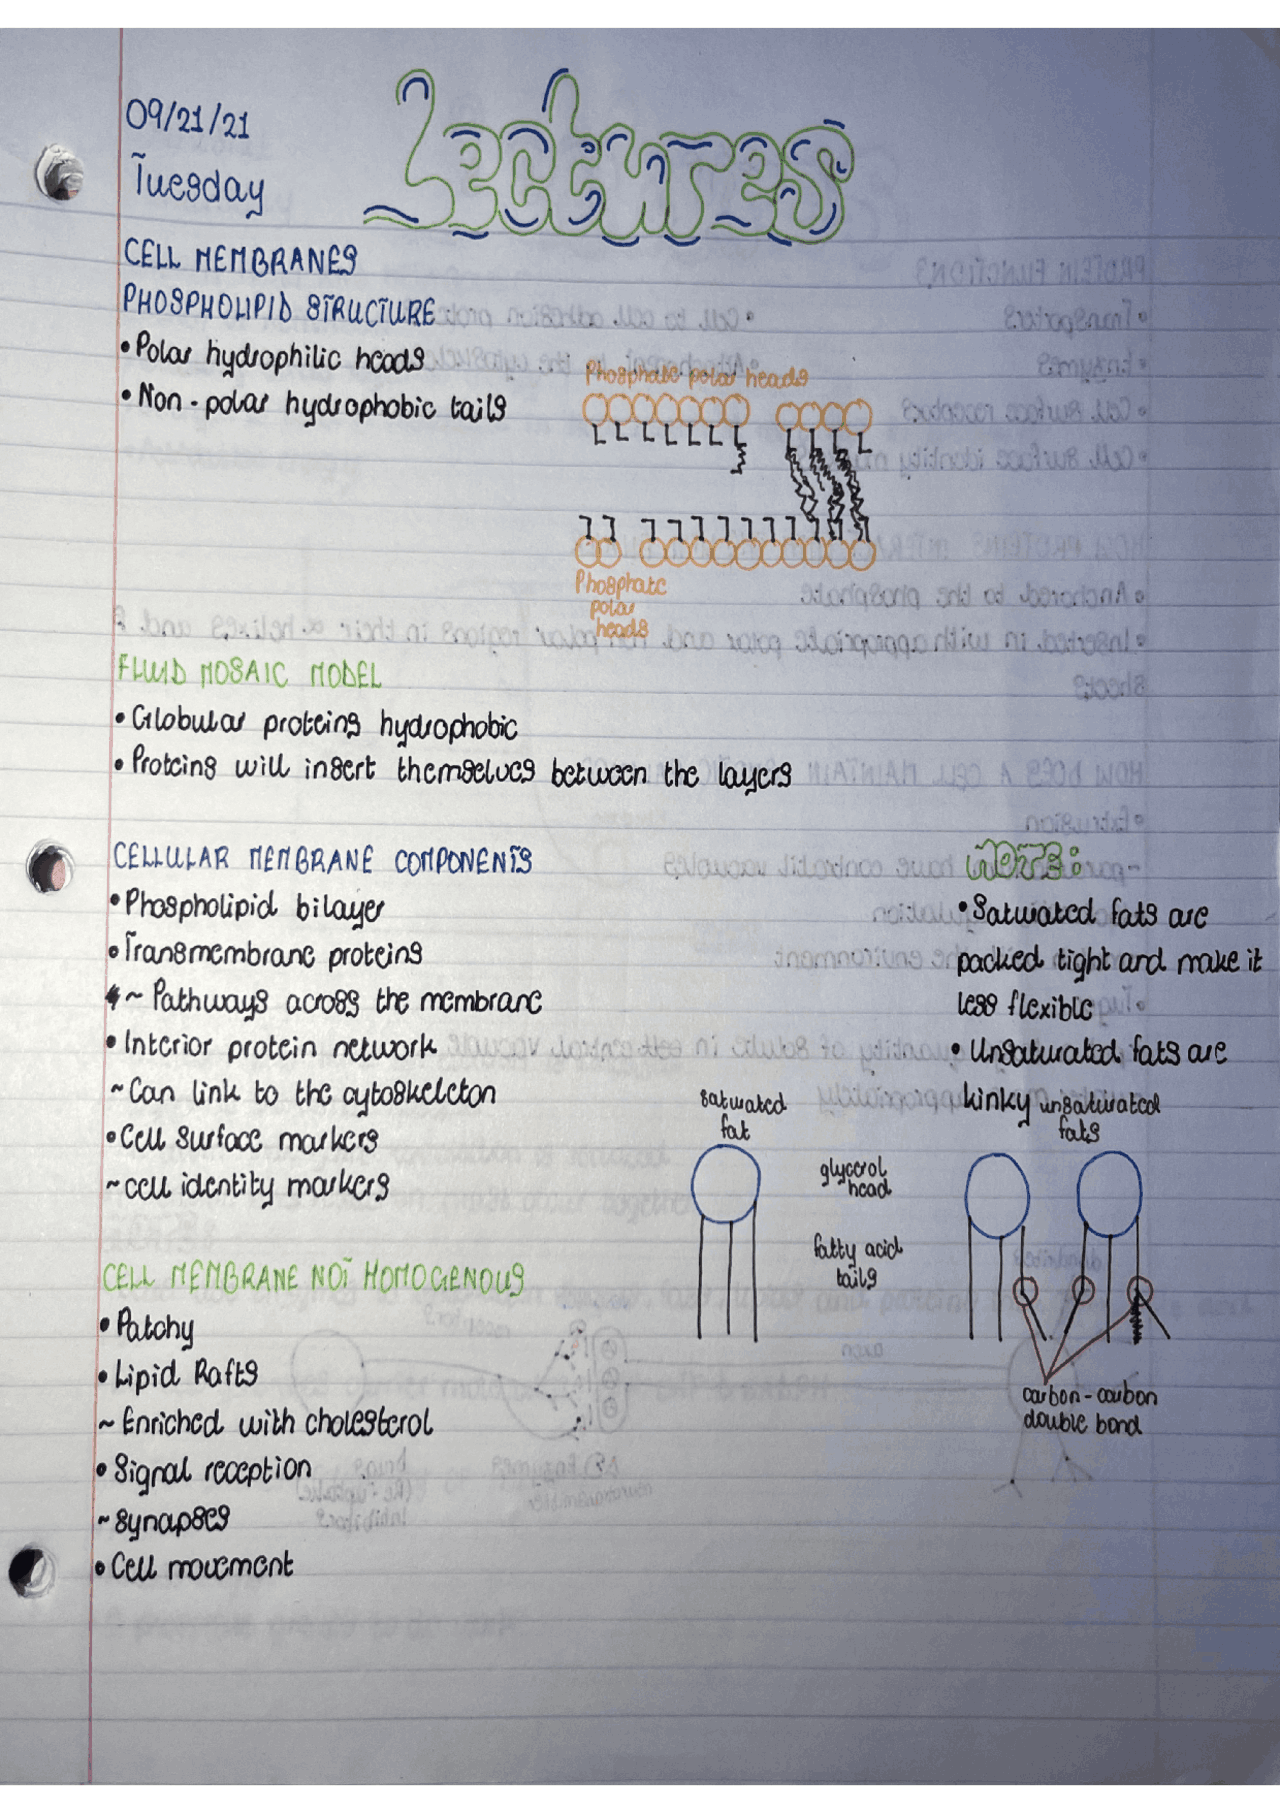 09/21/21
Tuesday
Lectures
CELL MEMBRANES
PHOSPHOLIPID STRUCTURE
• Polar hydrophilic heads
• Non-polar hydrophobic tails
Phosphate polar heads
Phosphate
polar
heads
FLUID MOSAIC MODEL
• Globular proteins hydrophobic
• Proteins will insert themselves between the layers
CELLULAR MEMBRANE COMPONENTS
• Phospholipid bilayer
• Transmembrane proteins
~ Pathways across the membrane
• Interior protein network
~ Can link to the cytoskeleton
• Cell surface markers
~ cell identity markers
NOTE:
• Saturated fats are
packed tight and make it
less flexible
• Unsaturated fats are
kinky
saturated
fat
glycerol
head
fatty acid
tails
unsaturated
fats
carbon-carbon
double bond
CELL MEMBRANE NOT HOMOGENOUS
• Patchy
• Lipid Rafts
~ Enriched with cholesterol
• Signal reception
~ synapses
• Cell movement